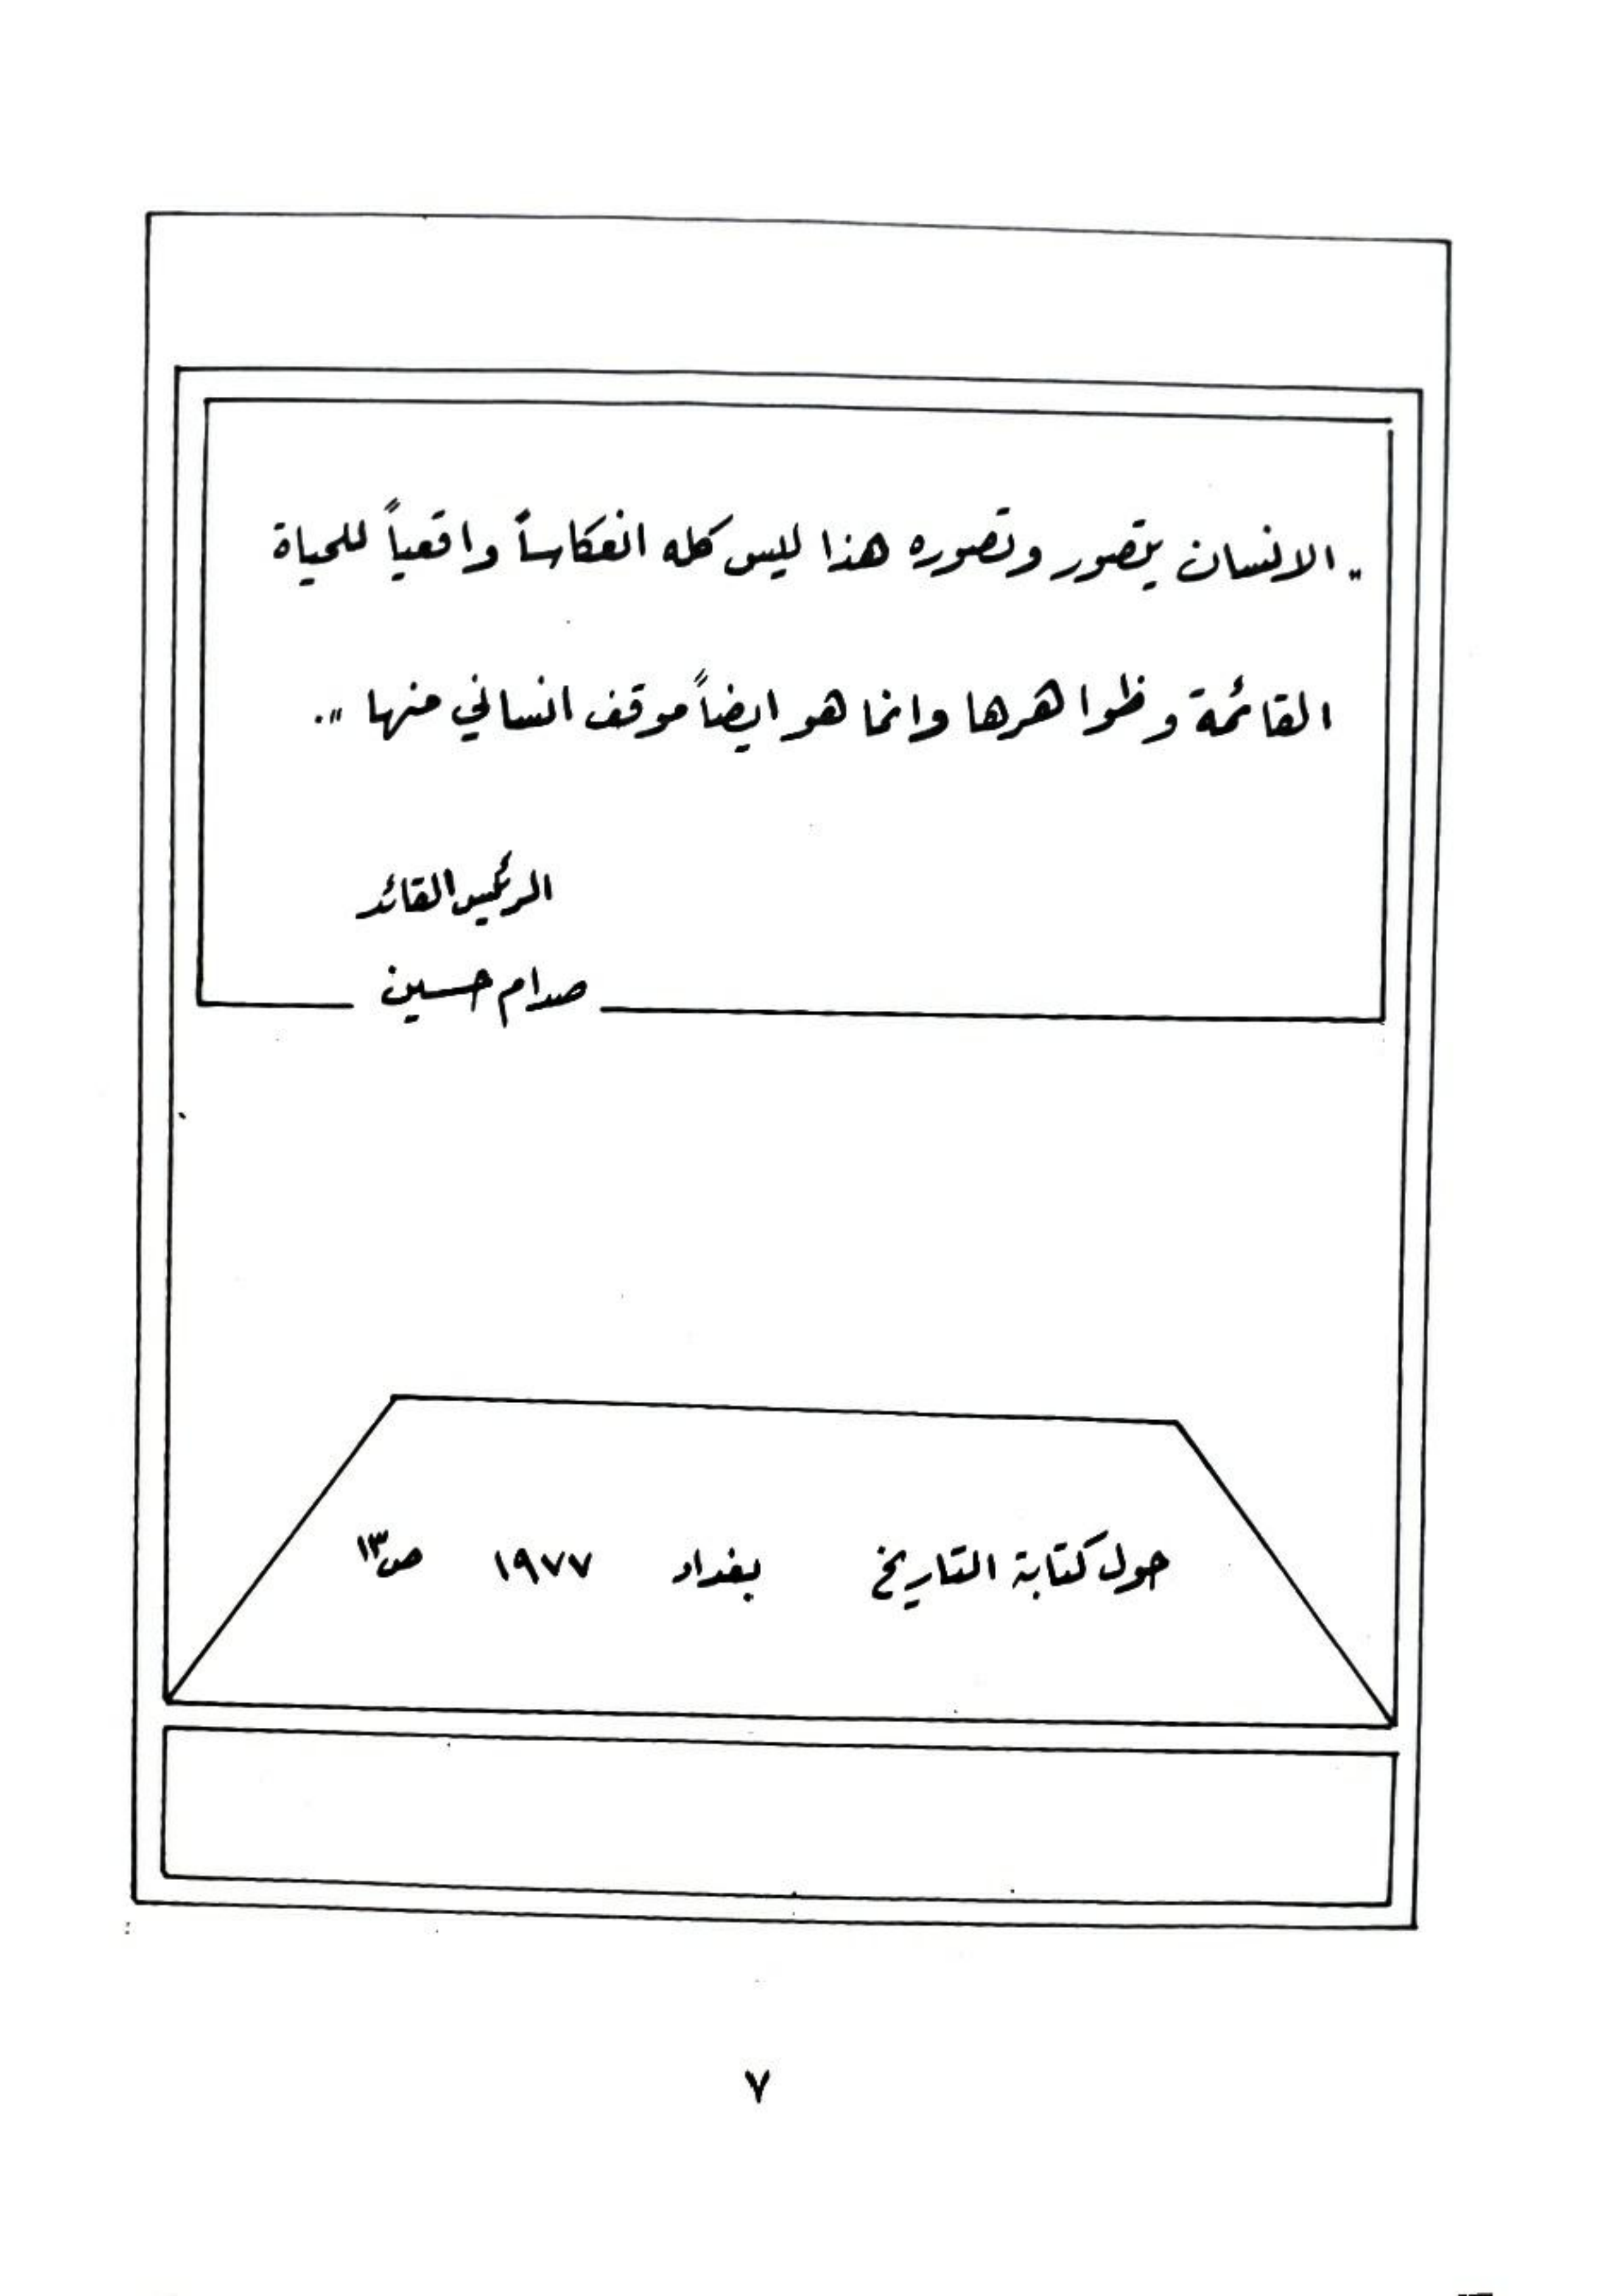 "الانسان يتصور وتصوره هذا ليس كله انعكاساً واقعياً للحياة
القائمة وظواهرها وانما هو ايضاً موقف انساني منها".
الرئيس القائد
صدام حسين
حول كتابة التاريخ بغداد ١٩٧٧ ص١٣
٧